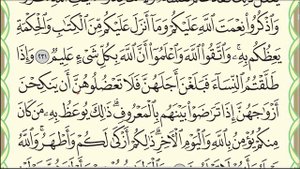 وَٱذْكُرُوا۟ نِعْمَتَ ٱللَّهِ عَلَيْكُمْ وَمَآ أَنزَلَ عَلَيْكُم مِّنَ ٱلْكِتَٰبِ وَٱلْحِكْمَةِ
يَعِظُكُم بِهِۦ ۚ وَٱتَّقُوا۟ ٱللَّهَ وَٱعْلَمُوٓا۟ أَنَّ ٱللَّهَ بِكُلِّ شَىْءٍ عَلِيمٌ ﴿٢٣١﴾ وَإِذَا
طَلَّقْتُمُ ٱلنِّسَآءَ فَبَلَغْنَ أَجَلَهُنَّ فَلَا تَعْضُلُوهُنَّ أَن يَنكِحْنَ
أَزْوَٰجَهُنَّ إِذَا تَرَٰضَوْا۟ بَيْنَهُم بِٱلْمَعْرُوفِ ۗ ذَٰلِكَ يُوعَظُ بِهِۦ مَن كَانَ
مِنكُمْ يُؤْمِنُ بِٱللَّهِ وَٱلْيَوْمِ ٱلْءَاخِرِ ۗ ذَٰلِكُمْ أَزْكَىٰ لَكُمْ وَأَطْهَرُ ۗ وَٱللَّهُ